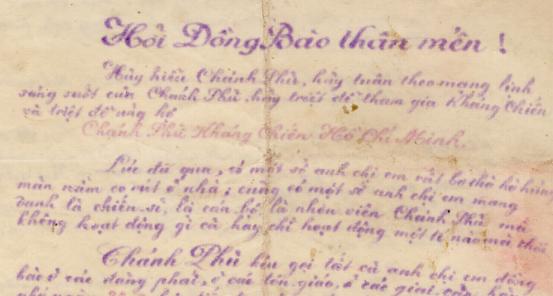 Hỡi Đồng Bào thân mến !
Hãy hiểu Chánh Phủ, hãy tuân theo mạng lịnh
sáng suốt của Chánh Phủ, hãy triệt để tham gia Kháng Chiến
và triệt để ủng hộ
Chánh Phủ Kháng Chiến Hồ Chí Minh.
Lúc đã qua, có một số anh chị em rất bơ thờ hờ hửng
mãn nằm co rút ở nhà; cũng có một số anh chị em mang
danh là chiến sĩ, là cán bộ, là nhân viên Chánh Phủ, mà
không hoạt động gì cả hay chỉ hoạt động một tí nào mà thôi
Chánh Phủ kêu gọi tất cả anh chị em đồng
bào ở các đảng phái, ở các tôn giáo, ở các giai cấp, hãy